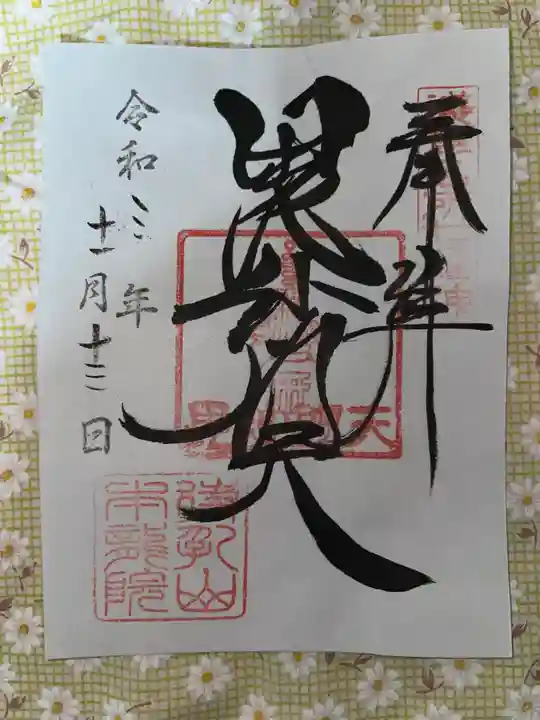 奉拝
毘沙門天
令和三年
十一月十三日
待乳山
本龍院